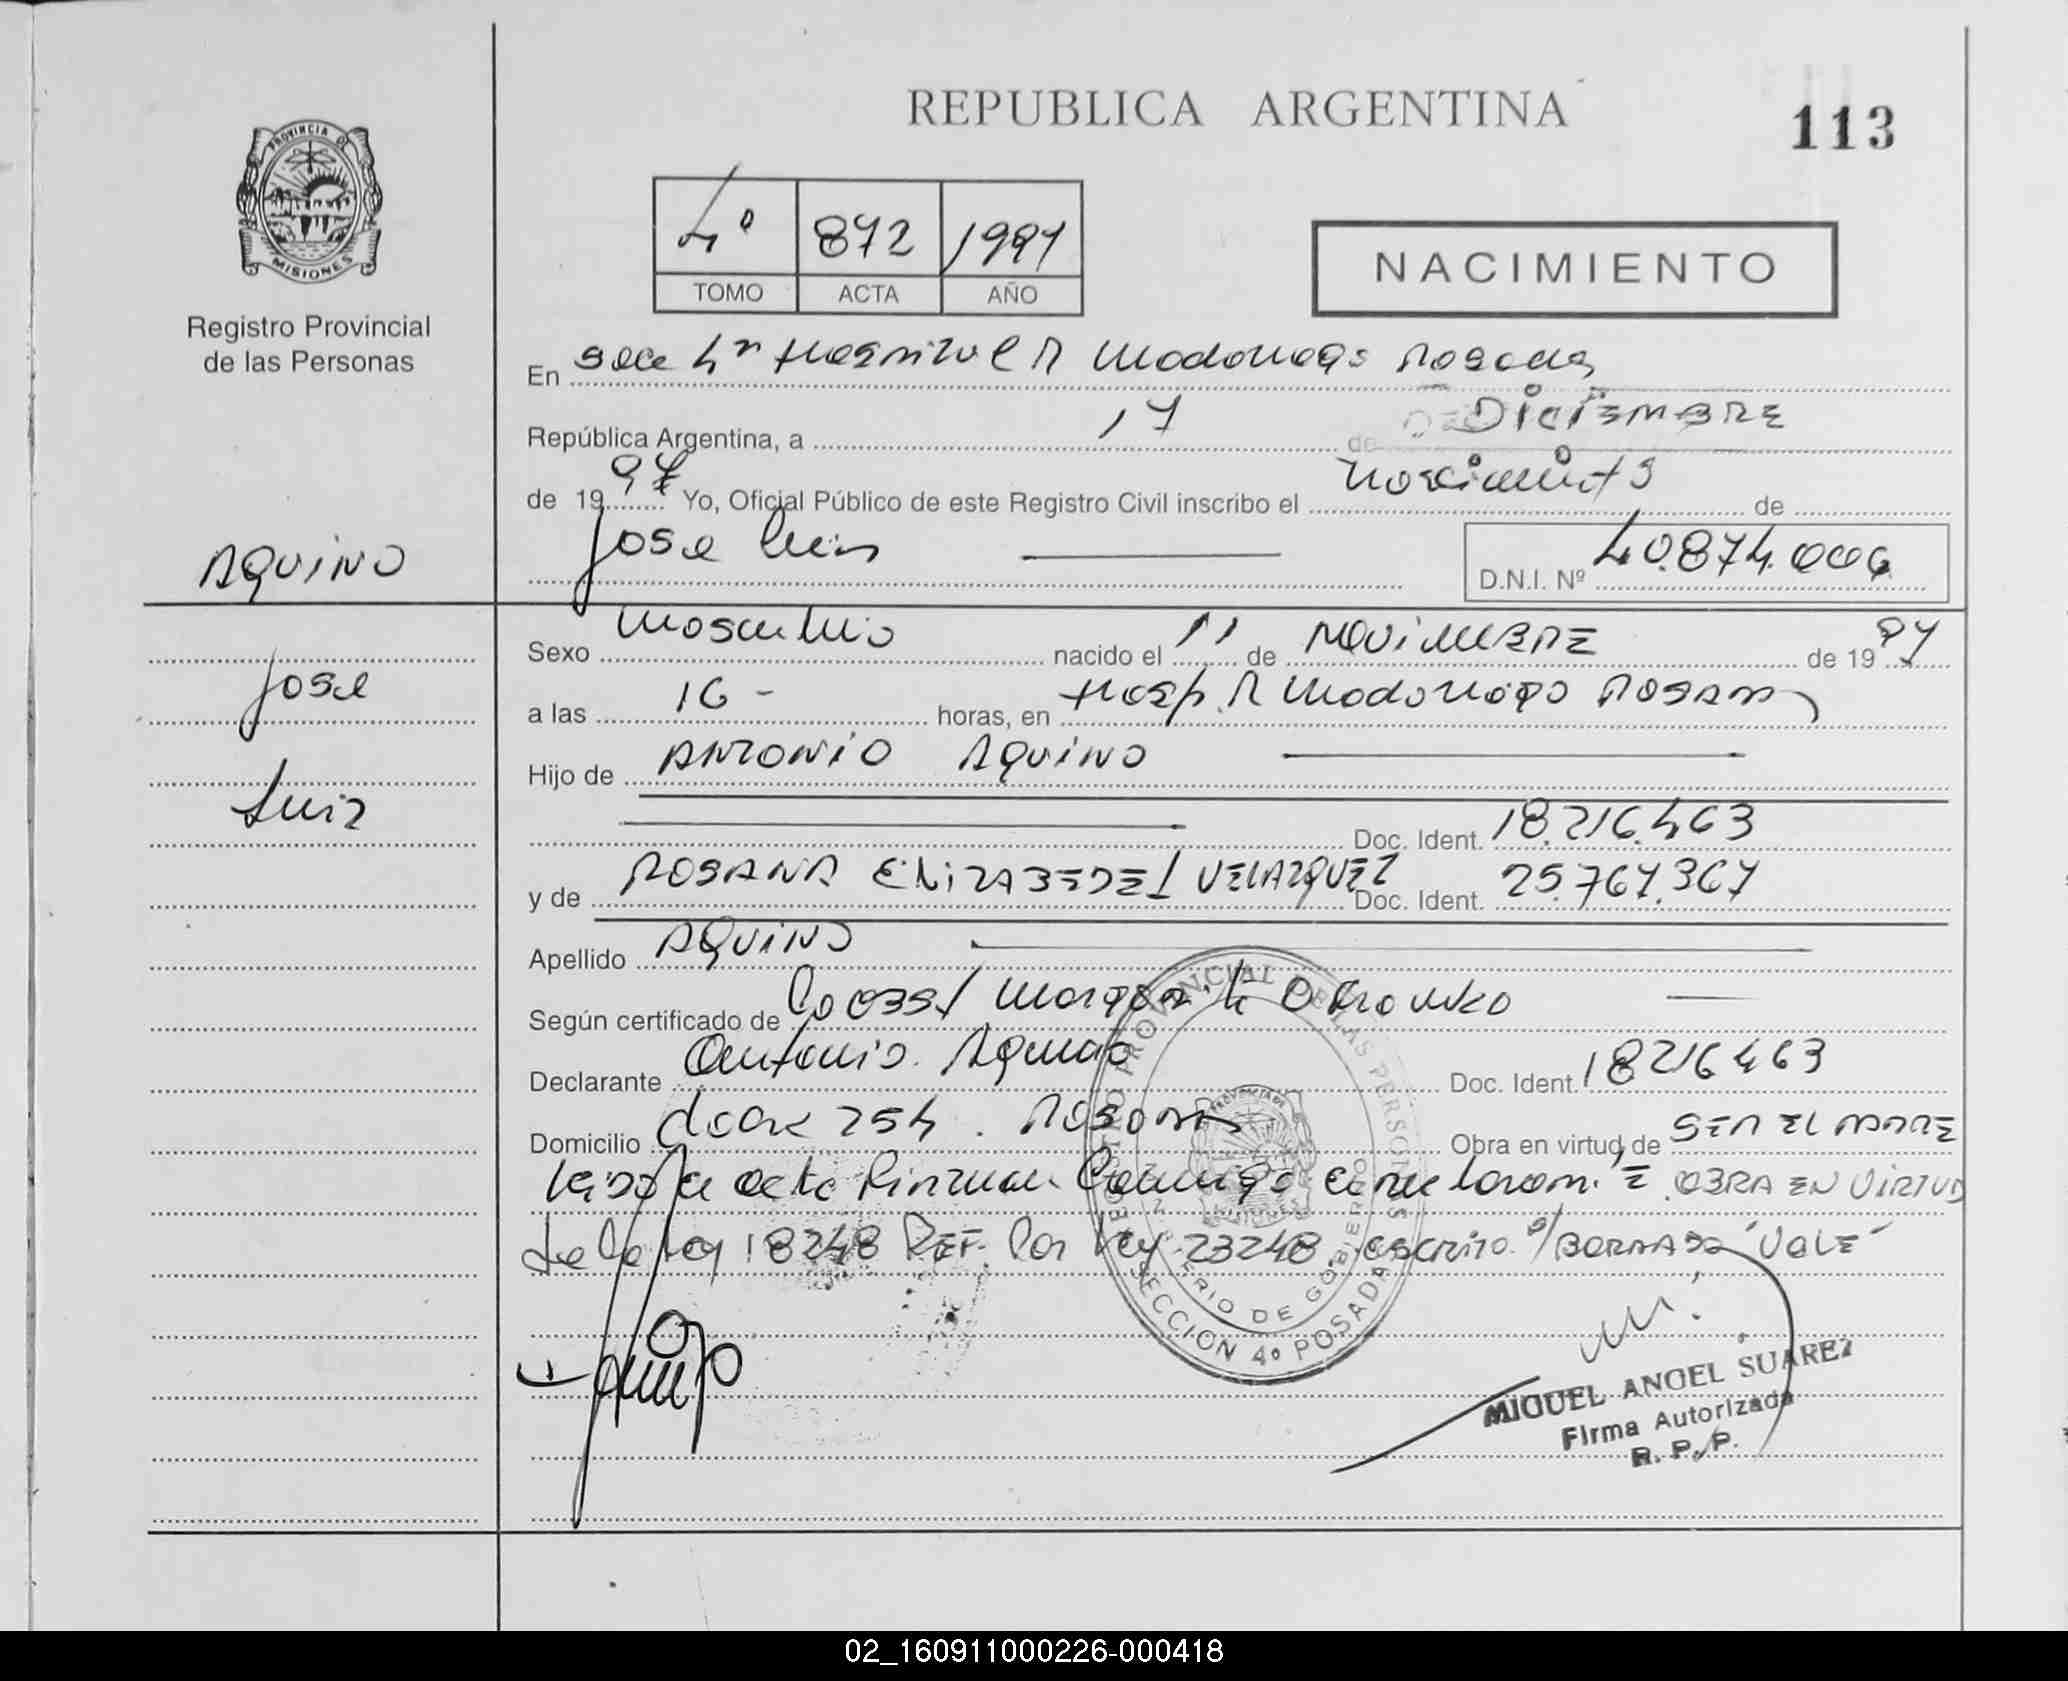 REPUBLICA ARGENTINA
113
PROVINCIA DE
MISIONES
Registro Provincial
de las Personas
4º 872 1997
TOMO ACTA AÑO
NACIMIENTO
En Secc 4ª Hospital R Madariaga Posadas
República Argentina, a 17 de DICIEMBRE
de 1997 Yo, Oficial Público de este Registro Civil inscribo el nacimiento de
Jose Luis
D.N.I. Nº 40.874.006
AQUINO
Jose
Luis
Sexo masculino nacido el 11 de NOVIEMBRE de 1997
a las 16 - horas, en Hosp. R Madariaga Posadas
Hijo de ANTONIO AQUINO
Doc. Ident. 18.216.463
y de ROSANA ELIZABEDET VELAZQUEZ Doc. Ident. 25.767.367
Apellido AQUINO
Según certificado de
Declarante Antonio Aquino Doc. Ident. 18216463
Domicilio 254. Posadas Obra en virtud de SER EL PADRE
leida el acta firman conmigo OBRA EN VIRTUD
de la ley 18248 REF. Por ley 23248. escrito s/BORRADO "VALE"
REGISTRO PROVINCIAL DE LAS PERSONAS
MINISTERIO DE GOBIERNO
SECCION 4º POSADAS
Aquino
MIGUEL ANGEL SUAREZ
Firma Autorizada
R. P. P.
02_160911000226-000418